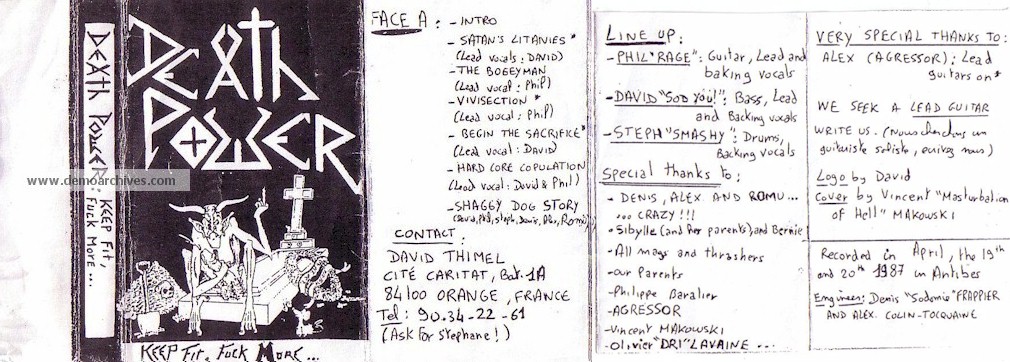 DEATH POWER: KEEP FIT,
FUCK MORE...
DEATH
POWER
www.demoarchives.com
KEEP FIT, FUCK MORE...
FACE A : - INTRO
- SATAN'S LITANIES *
(Lead vocals: DAVID)
- THE BOGEYMAN
(Lead vocal: Phil)
- VIVISECTION *
(Lead vocal: Phil)
- BEGIN THE SACRIFICE *
(Lead vocal: DAVID)
- HARD CORE COPULATION
(Lead vocal: David & Phil)
- SHAGGY DOG STORY
(David, Phil, Steph, Denis, Alex, Romu)
CONTACT :
DAVID THIMEL
CITÉ CARITAT, Bat. 1A
84100 ORANGE, FRANCE
Tel: 90.34-22-61
(Ask For Stephane!)
LINE UP :
- PHIL "RAGE": Guitar, Lead and
baking vocals
- DAVID "SOD YOU!": Bass, Lead
and Backing vocals
- STEPH "SMASHY": Drums,
Backing vocals
Special thanks to :
- DENIS, ALEX AND ROMU...
... CRAZY!!!
- Sibylle (and her parents) and Bernie
- All mags and thrashers
- our Parents
- Philippe Baralier
- AGRESSOR
- Vincent MAKOWSKI
- Olivier "DRI" LAVAINE ...
VERY SPECIAL THANKS TO:
ALEX (AGRESSOR); Lead
guitars on *
WE SEEK A LEAD GUITAR
WRITE US. (Nous cherchons un
guitariste soliste, écrivez nous)
Logo by David
Cover by Vincent "Masturbation
of Hell" MAKOWSKI
Recorded in April, the 19th
and 20th 1987 in Antibes
Engineer: Denis "Sodomie" FRAPPIER
AND ALEX. COLIN-TOCQUAINE